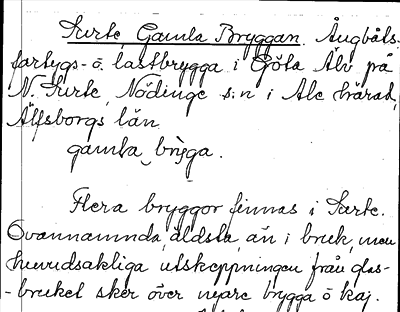 Surte, Gamla Bryggan. Ångbåts-
fartygs- o. lastbrygga i Göta Älv på
N. Surte, Nödinge s:n i Ale härad,
Älfsborgs län.
gamla brìgga.
Flera bryggor finnas i Surte.
Ovannämnda, äldsta, än i bruk, men
huvudsakliga utskeppningen från glas-
-bruket sker över nyare brygga o kaj.